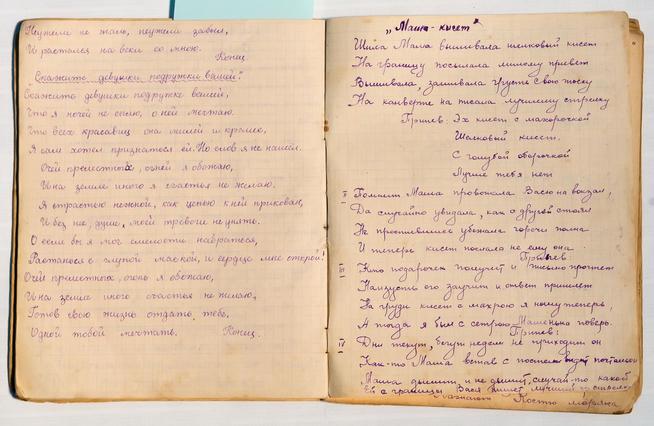 Неужели не жаль, неужели забыл,
И растался на веки со мною.
Конец
„Скажите девушки подружке вашей"
Скажите девушки подружке вашей,
Что я ночей не сплю, о ней мечтаю.
Что всех красавиц она милей и краше,
Я сам хотел признаться ей. Но слов я не нашел.
Очей прелестных, огней я обожаю,
И на земле иного я счастья не желаю.
Я страстью нежной, как цепью к ней прикован,
И без нее, душе, моей тревоги не унять.
О если бы я мог смелости набраться,
Растаться с глупой маской, и сердце мне открой!
Очей прелестных, огонь я обожаю,
И на земле иного счастья не желаю,
Готов свою жизнь отдать тебе,
Одной тобой мечтать. Конец.
„Маша-кисет"
Шила Маша вышивала шелковый кисет
На границу посылала милому привет
Вышивала, зашивала грусть свою тоску
На конверте на писала лучшему стрелку
Припев: Эх кисет с махорочкой
Шелковый кисет.
С голубой оборочкой
Лучше тебя нет
II Помнит Маша провожала Васю на вокзал,
Да случайно увидала, как с другой стоял
Не простившись убежала горечи полна
И теперь кисет послала не ему она.
Припев
III Кто подарочек получит и письмо прочтет
Наизусть его заучит и ответ пришлет
На груди кисет с махрою я ношу теперь,
А тогда я был с сестрою Машенька поверь.
Припев:
IV Дни текут, бегут недели не приходит он
Как-то Маша встав с постели видит почтальон
Маша дышит и не дышит, случай-то какой
Ей с границы Вася пишет лучший
Костю моряка